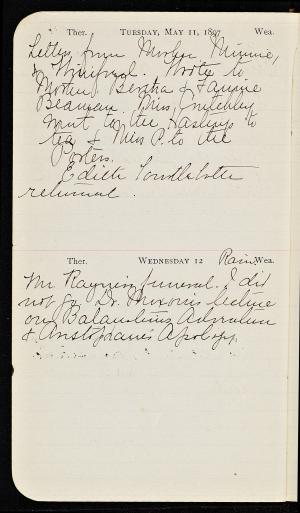 Ther. TUESDAY, MAY 11, 1897 Wea.
Letters from Mother, Minnie,
& Winifred. Wrote to
Mother, Bertha & Fannie
Beaman. Miss
went to the Hastings to
tea & Miss P. to the
Porters.
Edith
returned.
Ther. WEDNESDAY 12 Rain Wea.
Mr. funeral. I did
not go. Dr. lecture
on Balaustion's Adventure
& Aristophanes Apology.